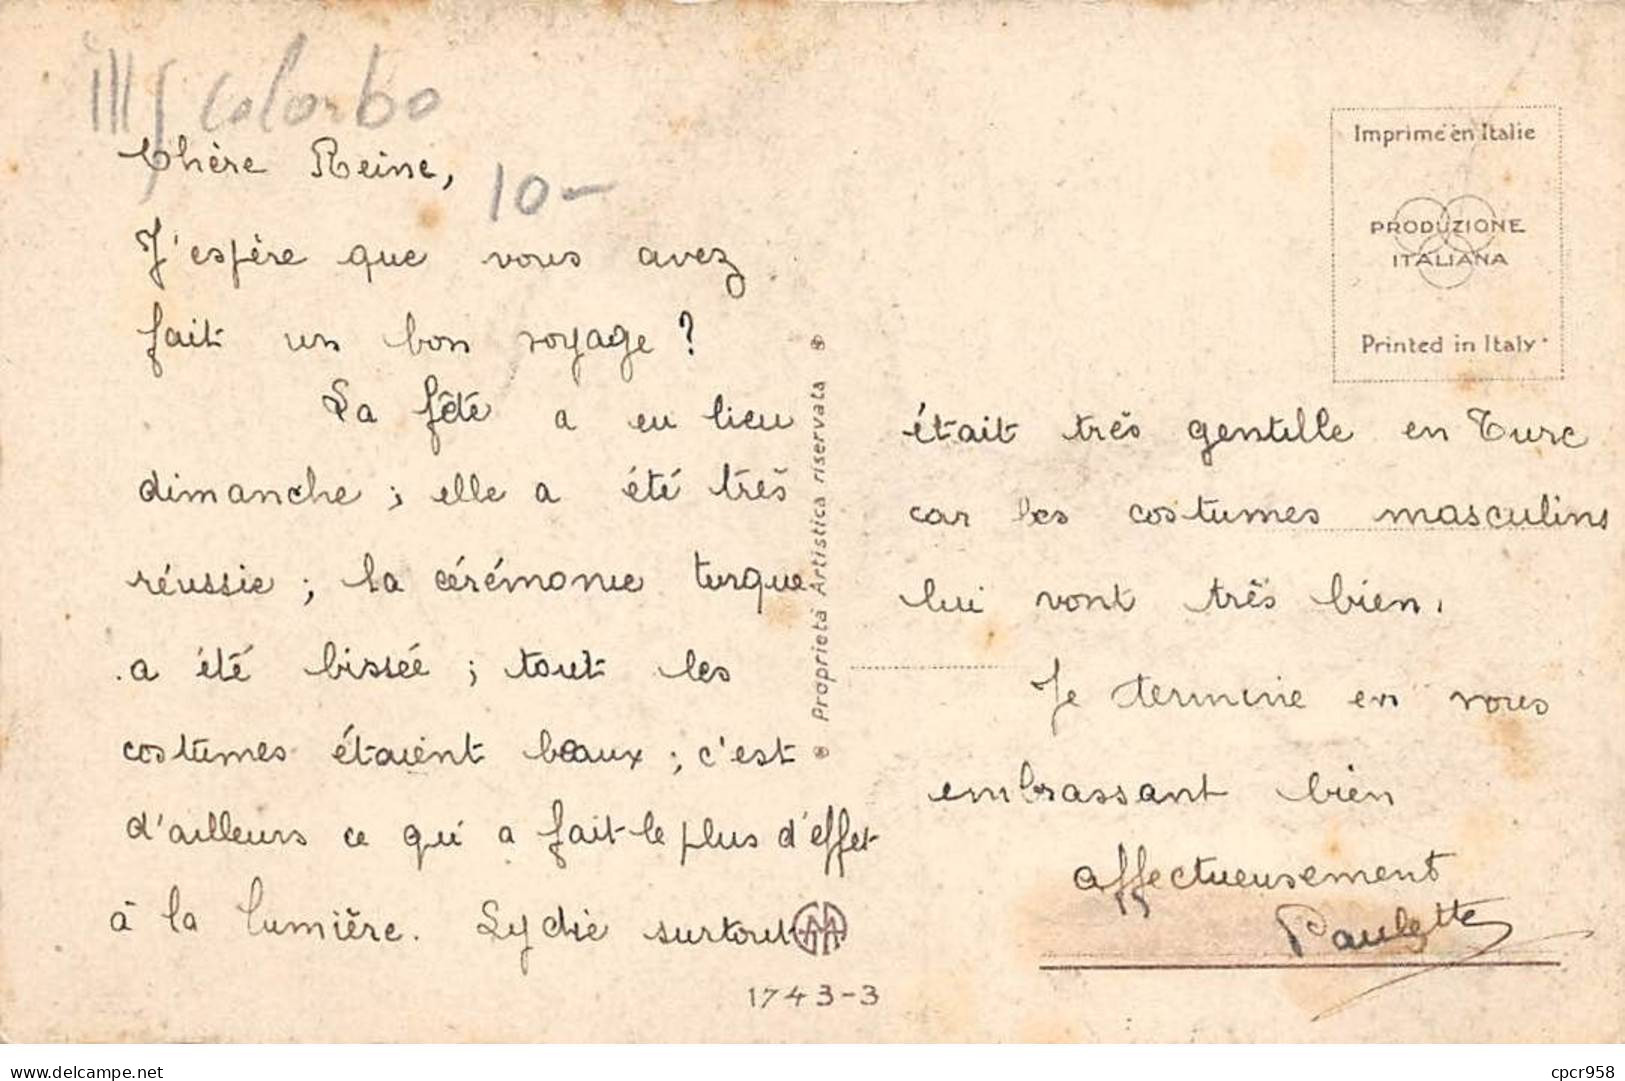 ill colombo
Chère Reine,
10-
J'espère que vous avez
fait un bon voyage ?
La fête a eu lieu
dimanche ; elle a été très
réussie ; la cérémonie turque
a été bissée ; tout les
costumes étaient beaux ; c'est
d'ailleurs ce qui a fait le plus d'effet
à la lumière. Lydie surtout
1743-3
Proprietà Artistica riservata
Imprimé en Italie
PRODUZIONE
ITALIANA
Printed in Italy
était très gentille en Turc
car les costumes masculins
lui vont très bien.
Je termine en vous
embrassant bien
affectueusement
Paulette
delcampe.net
cpcr958